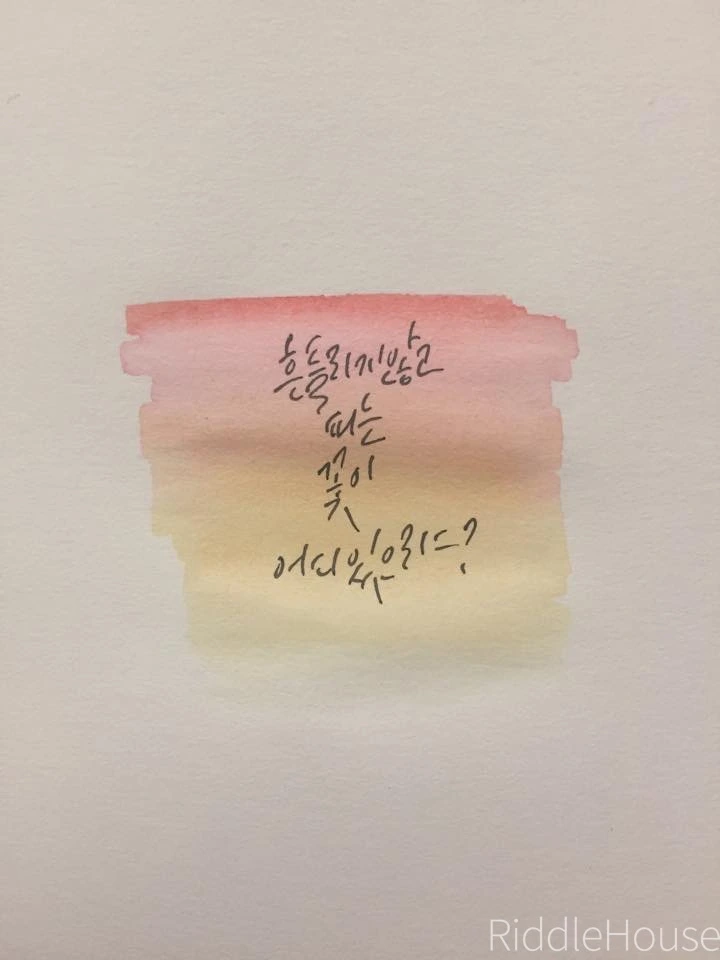 흔들리지않고
피는
꽃이
어디있으리ㅡ?
RiddleHouse